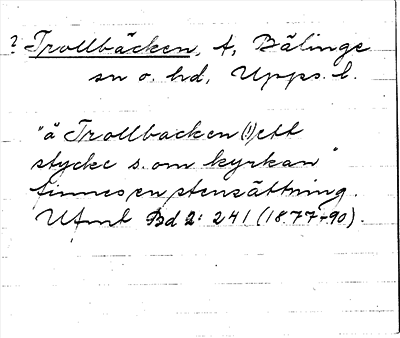 ? Trollbäcken, t, Bälinge
sn o. hd, Upps. l.
"å Trollbacken (!) ett
stycke s. om kyrkan"
finnes en stensättning.
Ufmt Bd 2: 241 (1877-90).